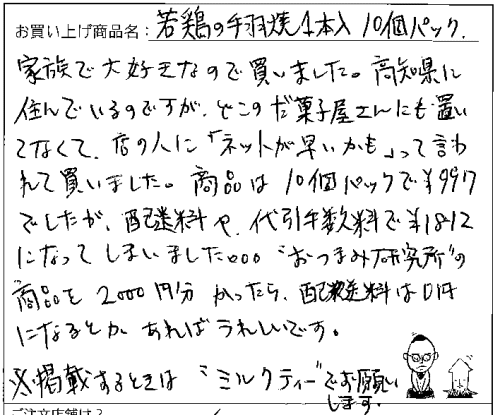 お買い上げ商品名：若鶏の手羽焼1本入 10個パック.
家族で大好きなので買いました。高知県に
住んでいるのですが、どこのだ菓子屋さんにも置い
てなくて、店の人に「ネットが早いかも」って言わ
れて買いました。商品は10個パックで¥997
でしたが、配送料や、代引手数料で¥1812
になってしまいました。。。"おつまみ研究所"の
商品を2000円分かったら、配送料は0円
になるとかあればうれしいです。
※掲載するときは"ミルクティー"でお願い
します。
ご注文店舗は？